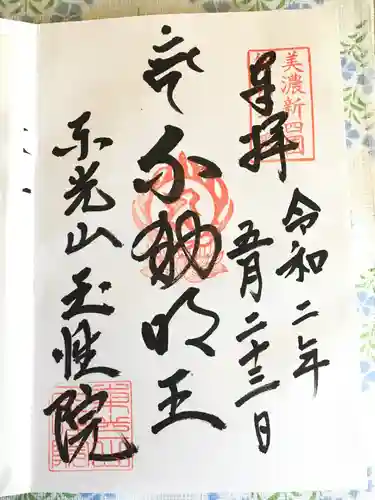 美濃新四国
奉拝
令和二年
五月二十三日
不動明王
東光山 玉性院